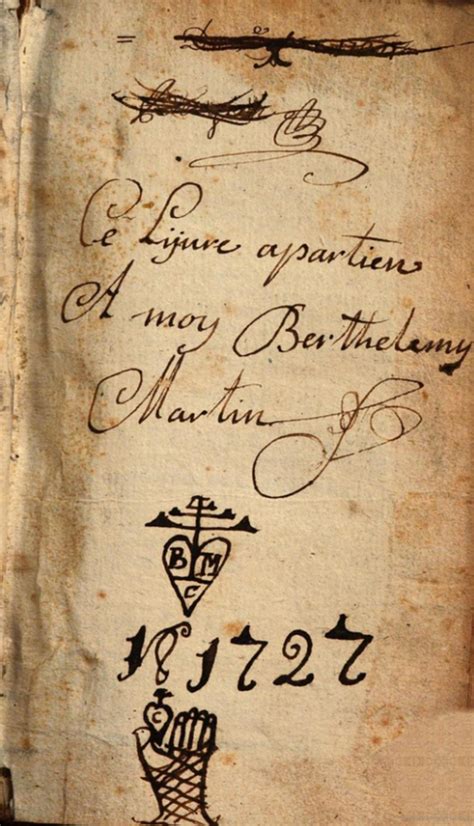 Ce Lijure apartien
A moy Berthelemy
Martin
B M
C
1727
C